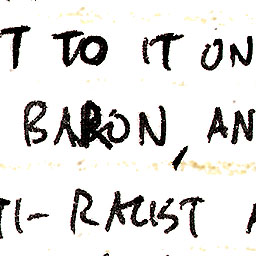 T TO IT ON
BARON, AN
TI- RACIST A